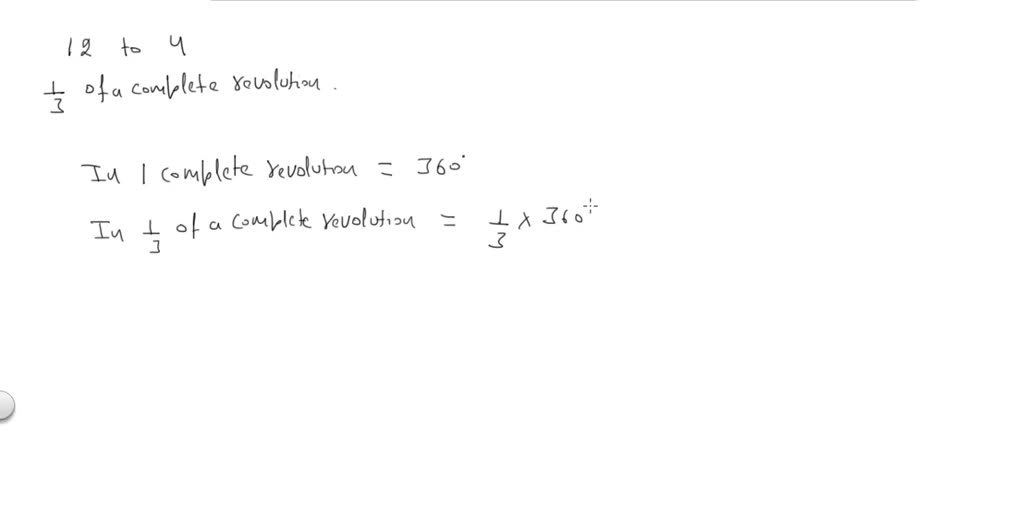 12 to 4
1/3 of a complete revolution.
In 1 complete revolution = 360°
In 1/3 of a complete revolution = 1/3 × 360°